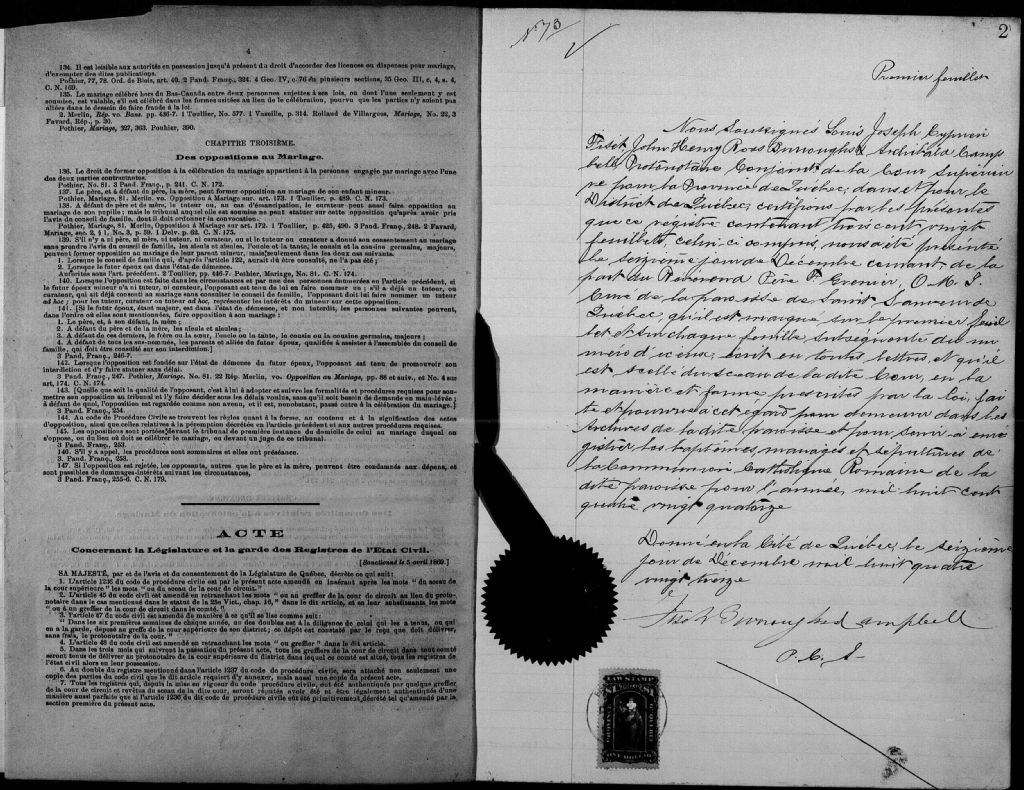 4
134. Il est loisible aux autorités en possession jusqu'à présent du droit d'accorder des licences ou dispenses pour mariage,
d'exempter des dites publications.
Pothier, 77, 78. Ord. de Blois, art. 40. 2 Pand. Franç., 324. 4 Geo. IV, c. 76 en plusieurs sections, 35 Geo. III, c. 4, s. 4,
C. N. 169.
135. Le mariage célébré hors du Bas-Canada entre deux personnes sujettes à ses lois, ou dont l'une seulement y est
soumise, est valable, s'il est célébré dans les formes usitées au lieu de la célébration, pourvu que les parties n'y soient pas
allées dans le dessein de faire fraude à la loi.
2. Merlin, Rép. vo. Bans. pp. 436-7. 1 Toullier, No. 577. 1 Vazeille, p. 314. Rolland de Villargues, Mariage, No. 22, 3
Favard, Rép., p. 30.
Pothier, Mariage, 327, 363. Pouhier, 390.
CHAPITRE TROISIÈME.
Des oppositions au Mariage.
136. Le droit de former opposition à la célébration du mariage appartient à la personne engagée par mariage avec l'une
des deux parties contractantes.
Pothier, No. 81. 3 Pand. Franç., p. 241. C. N. 172.
137. Le père, et à défaut de père, la mère, peut former opposition au mariage de son enfant mineur.
Pothier, Mariage, 81. Merlin. vo. Opposition à Mariage sur art. 173. 1 Toullier, p. 489. C. N. 173.
138. A défaut de père et de mère, le tuteur ou, en cas d'émancipation, le curateur peut aussi faire opposition au
mariage de son pupille; mais le tribunal auquel elle est soumise ne peut statuer sur cette opposition qu'après avoir pris
l'avis du conseil de famille, dont il doit ordonner la convocation.
Pothier, Mariage, 81. Merlin, Opposition à Mariage sur art. 172. 1 Toullier, p. 425, 490. 3 Pand. Franç., 248. 2 Favard,
Mariage, sec. 2, § 1, No. 3, p. 59. 1 Delv. p. 62. C. N. 175.
139. S'il n'y a ni père, ni mère, ni tuteur, ni curateur, ou si le tuteur ou curateur a donné son consentement au mariage
sans prendre l'avis du conseil de famille, les aïeuls et aïeules, l'oncle et la tante, le cousin et la cousine germains, majeurs,
peuvent former opposition au mariage de leur parent mineur, mais seulement dans les deux cas suivants.
1. Lorsque le conseil de famille qui, d'après l'article 122, aurait dû être consulté, ne l'a pas été;
2. Lorsque le futur époux est dans l'état de démence.
Autorités sous l'art. précédent. 2 Toullier, pp. 446-7. Pothier, Mariage, No. 81. C. N. 174.
140. Lorsque l'opposition est faite dans les circonstances et par une des personnes énumérées en l'article précédent, si
le futur époux mineur n'a ni tuteur, ni curateur, l'opposant est tenu de lui en faire nommer un; s'il a déjà un tuteur, ou
curateur, qui ait déjà consenti au mariage sans consulter le conseil de famille, l'opposant doit lui faire nommer un tuteur
ad hoc; pour les tuteur, curateur ou tuteur ad hoc, représenter les intérêts du mineur sur cette opposition.
141. [Si le futur époux, étant majeur, est dans l'état de démence, et non interdit, les personnes suivantes peuvent,
dans l'ordre où elles sont mentionnées, faire opposition à son mariage:
1. Le père, et, à son défaut, la mère;
2. A défaut du père et de la mère, les aïeuls et aïeules;
3. A défaut de ces derniers, le frère ou la sœur, l'oncle ou la tante, le cousin ou la cousine germains, majeurs;
4. A défaut de tous les sus-nommés, les parents et alliés du futur époux, qualifiés à assister à l'assemblée du conseil de
famille, qui doit être consulté sur son interdiction.]
3 Pand. Franç., 246-7.
142. Lorsque l'opposition est fondée sur l'état de démence du futur époux, l'opposant est tenu de promouvoir son
interdiction et d'y faire statuer sans délai.
3 Pand. Franç., 247. Pothier, Mariage, No. 81. 22 Rép. Merlin, vo. Opposition au Mariage, pp. 88 et suiv., et No. 4 sur
art, 174. C. N. 174.
143. [Quelle que soit la qualité de l'opposant, c'est à lui à adopter et suivre les formalités et procédures requises pour
mettre son opposition au tribunal et l'y faire décider sous les délais voulus, sans qu'il soit besoin de demande en main-levée;
à défaut de quoi, l'opposition est regardée comme non avenue, et il est, nonobstant, passé outre à la célébration du mariage.]
3 Pand. Franç., 254.
144. Au code de Procédure Civile se trouvent les règles quant à la forme, au contenu et à la signification des actes
d'opposition, ainsi que celles relatives à la péremption décrétée en l'article précédent et aux autres procédures requises.
145. Les oppositions sont portées devant le tribunal de première instance du domicile de celui au mariage duquel on
s'oppose, ou du lieu où doit se célébrer le mariage, ou devant un juge de ce tribunal.
3 Pand. Franç., 253.
146. S'il y a appel, les procédures sont sommaires et elles ont préséance.
3 Pand. Franç., 253.
147. Si l'opposition est rejetée, les opposants, autres que le père et la mère, peuvent être condamnés aux dépens, et
sont passibles de dommages-intérêts suivant les circonstances,
3 Pand. Franç., 255-6. C. N. 179.
ACTE
Concernant la Législature et la garde des Registres de l'Etat Civil.
[Sanctionné le 5 avril 1869.]
SA MAJESTÉ, par et de l'avis et du consentement de la Législature de Québec, décrète ce qui suit:
1. L'article 1236 du code de procédure civile est par le présent acte amendé en insérant après les mots "du sceau de
la cour supérieure" les mots "ou du sceau de la cour de circuit."
2. L'article 45 du code civil est amendé en retranchant les mots "ou au greffier de la cour de circuit au lieu du proto-
notaire dans le cas mentionné dans le statut de la 25e Vict., chap. 16," dans le dit article, et en leur substituant les mots
"ou à un greffier de la cour de circuit dans le comté."
3. l'article 47 du code civil est amendé de manière à ce qu'il se lise comme suit:
"Dans les six premières semaines de chaque année, un des doubles est à la diligence de celui qui les a tenus, ou qui
en a la garde, déposé au greffe de la cour supérieure de son district; ce dépôt est constaté par le reçu que doit délivrer,
sans frais, le protonotaire de la cour."
4. L'article 48 du code civil est amendé en retranchant les mots "ou greffier" dans le dit article.
5. Dans les trois mois qui suivront la passation du présent actes, tous les greffiers de la cour de circuit dans tout comté
seront tenus de délivrer au protonotaire de la cour supérieure du district dans lequel ce comté est situé, tous les registres de
l'état civil alors en leur possession.
6. Au double du registre mentionné dans l'article 1237 du code de procédure civile, sera attaché non seulement une
copie des parties du code civil que le dit article requiert d'y annexer, mais aussi une copie du présent acte.
7. Tous les registres qui, depuis la mise en vigueur du code procédure civile, ont été authentiqués par quelque greffier
de la cour de circuit et revêtus du sceau de la dite cour, seront réputés avoir été et être légalement authentiqués d'une
manière aussi parfaite que si l'article 1236 du dit code de procédure civile eut été primitivement décrété tel qu'amendé par la
section première du présent acte.
No 73
2
Premier feuillet
Nous Soussignés Louis Joseph Cyprien
Fiset, John Henry Ross Burroughs & Archibald Camp
bell Protonotaire Conjoint de la Cour Supérieu
re pour la Province de Québec, dans et pour le
District de Québec, certifions par les présentes
que ce registre contenant trois cent vingt
feuillets, celui-ci compris, nous a été présenté
le seizième jour de Décembre courant, de la
part du Révérend Père F. Grenier, O. M. I.
Curé de la paroisse de Saint Sauveur de
Québec, qu'il est marqué sur le premier feuil
let et sur chaque feuillet subséquent du nu
méro d'icelui, écrit en toutes lettres, et qu'il
est scellé du sceau de la dite Cour, en la
manière et forme prescrites par la loi, fai
te et pourvue à cet égard pour demeurer dans les
Archives de la dite paroisse et pour servir à enre
gistrer les baptêmes, mariages et sépultures de
la Communion Catholique Romaine de la
dite paroisse pour l'année mil huit cent
quatre vingt quatorze
Donné en la Cité de Québec, le seizième
jour de Décembre mil huit quatre
vingt treize
Fiset Burroughs & Campbell
P. C. S
LAW STAMP
$1 $1
PROVINCE
QUEBEC
ONE DOLLAR